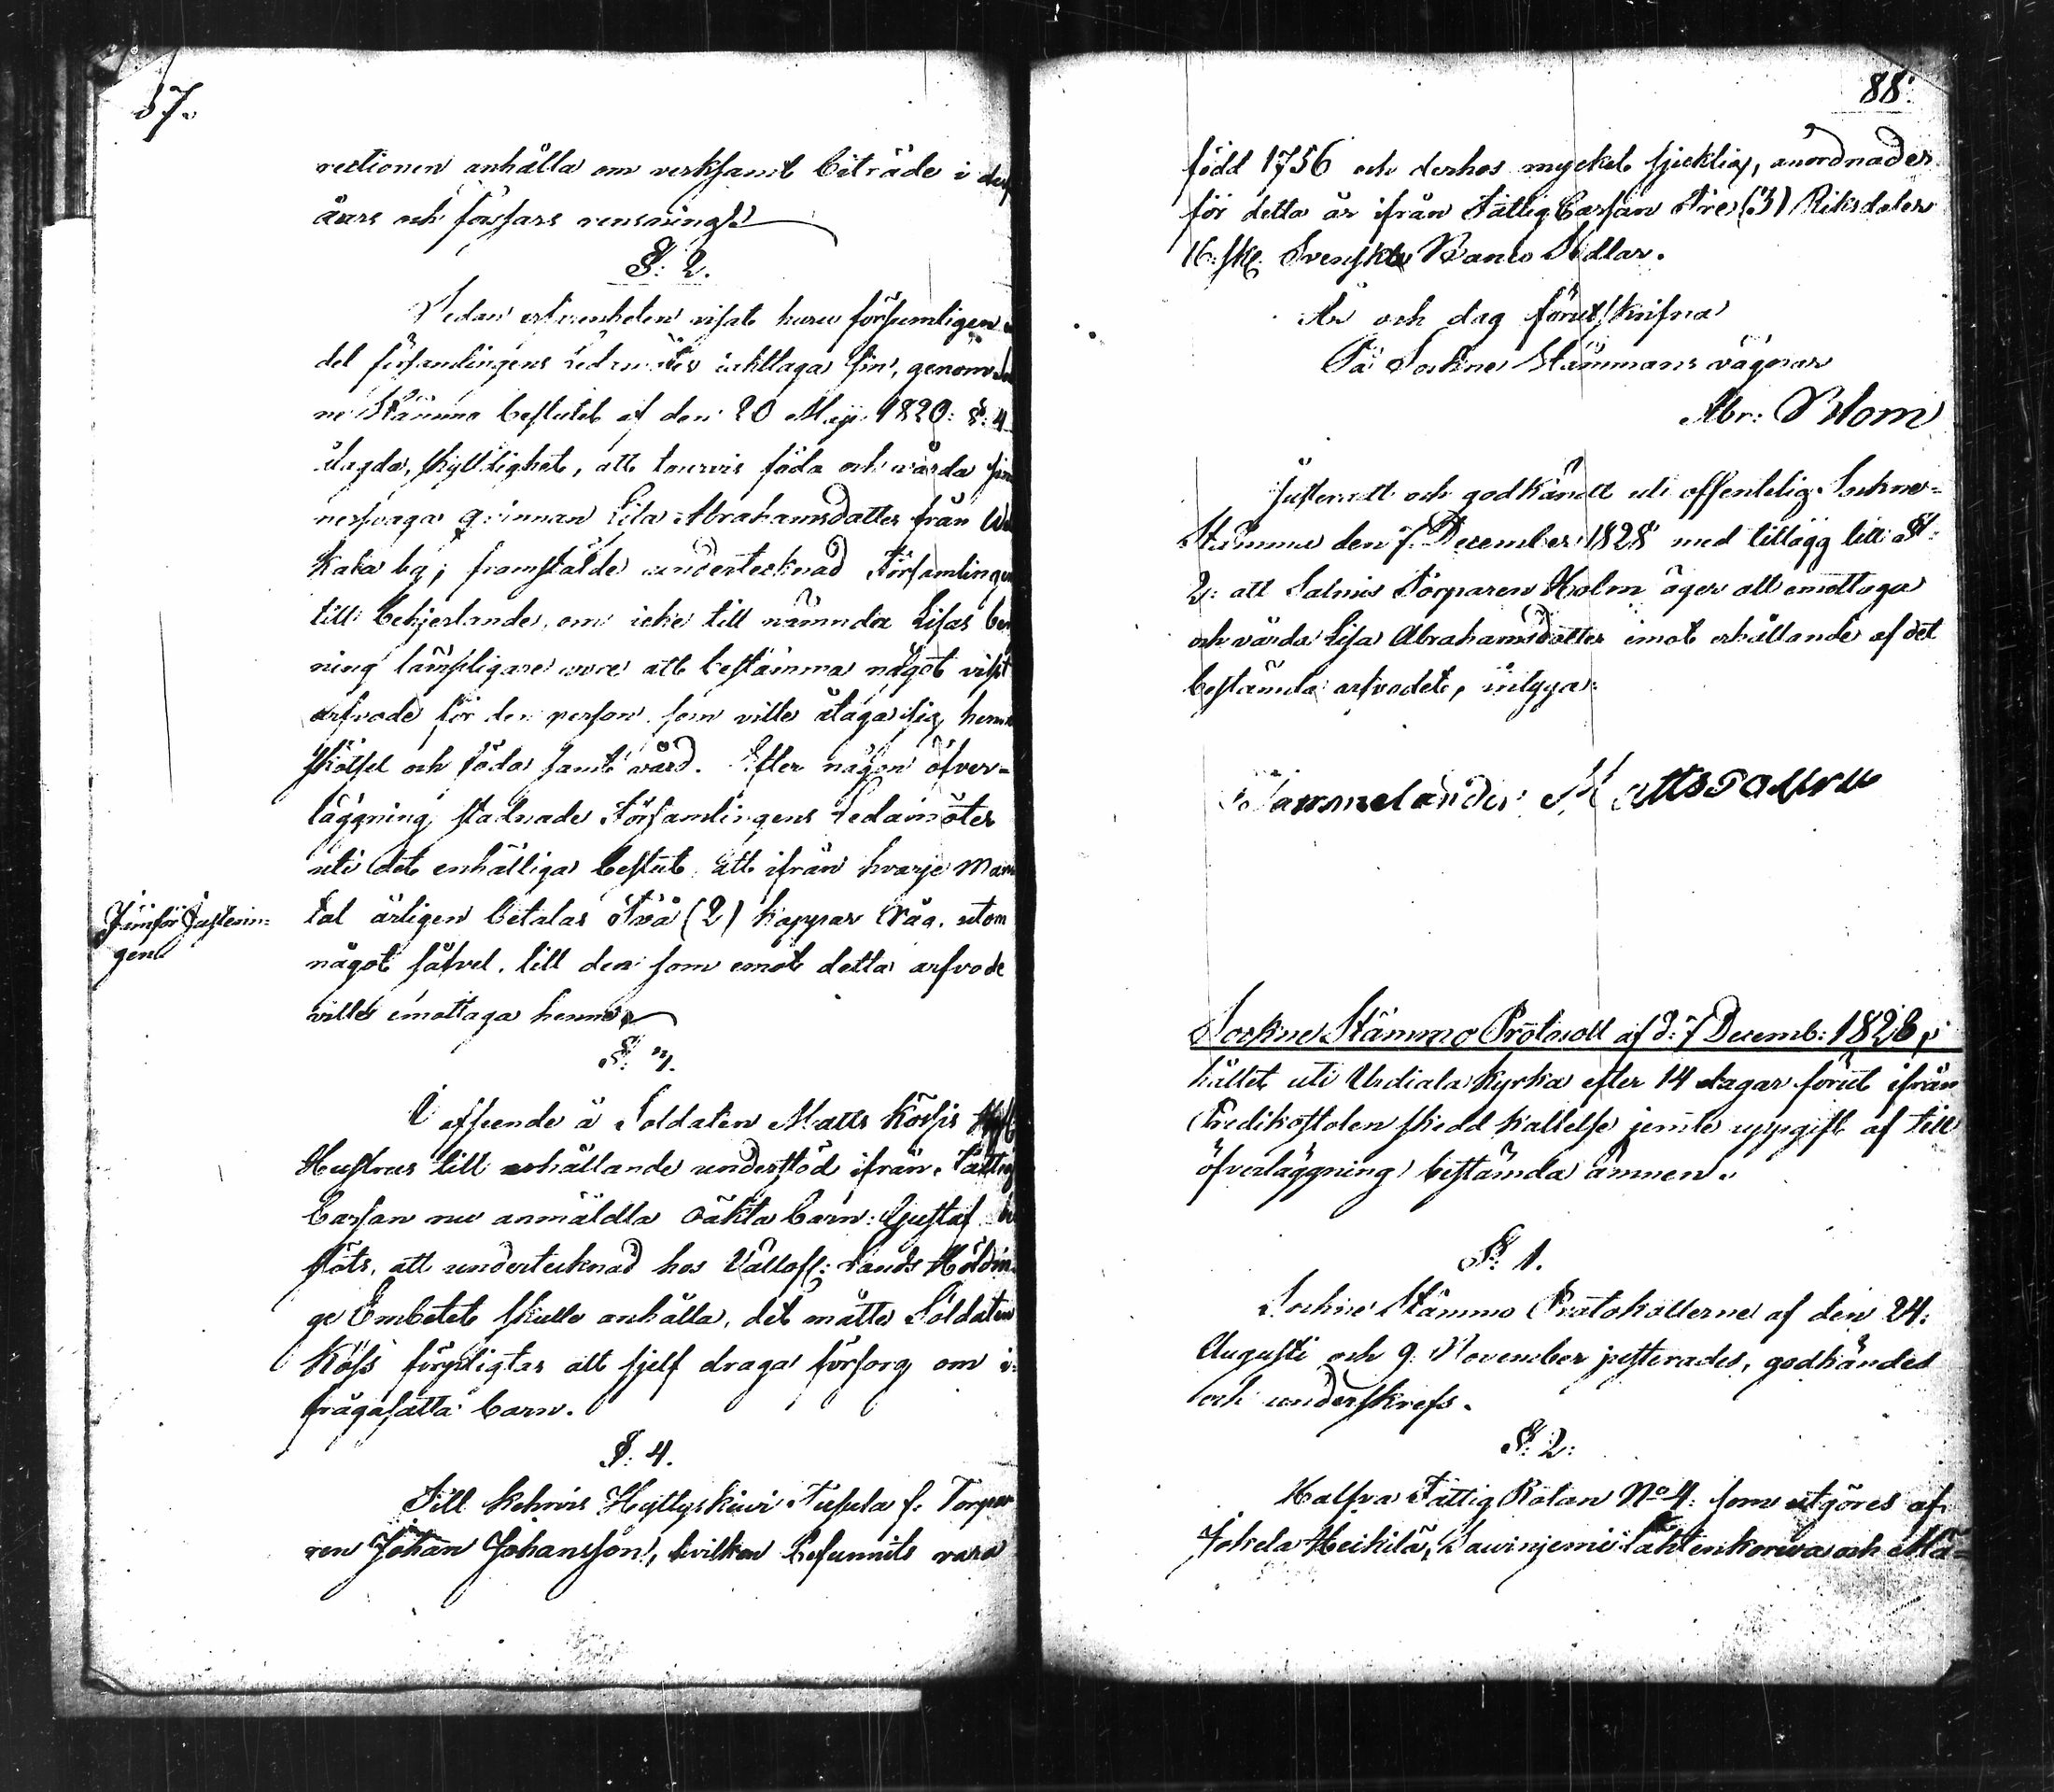 87.
rectionen anhålla om verksamt biträde i dess
åars och forssars rensning.
§: 2.
Sedan erfarenheten visat huru försumligen en
del församlingens Ledamöter iakttaga sin, genom Sock
ne Stämmo beslutet af den 20 Maji 1820: §: 4
ålagda, skyldighet, att tourvis föda och vårda sin
nessvaga qvinnan Lisa Abrahamsdotter från
Kaka by; framstälde undertecknad Församlingen
till behjertande, om icke till nämnda Lisas
ning lämpligare vore att bestämma något visst
arfvode för den person som ville åtaga sig hennes
skötsel och föda samt vård. Efter någon öfver-
läggning stadnade Församlingens Ledamöter
uti det enhälliga beslut, att ifrån hvarje Man
tal årligen betalas Två (2) kappar Råg, utom
något såfvel, till den som emot detta arfvode
ville emottaga henne.
Jämför Justerin-
gen
§: 3.
I afseende å Soldaten Matts Kössis
Hustrus till erhållande understöd ifrån Fattig
Cassan nu anmäldta oäkta barn: Gustaf be
slöts, att undertecknad hos Vällofl: Lands Höfdin-
ge Embetet skulle anhålla, det måtte Soldaten
Köss förpligtas att sjelf draga försorg om i-
frågasatta barn.
§: 4.
Till Kehnis Hyttyskiwi Tupula f. Torpa
ren Johan Johansson, hvilken befunnits vara
88.
född 1756 och derhos mycket sjuklig, anordnades
för detta år ifrån Fattig Cassan Tre (3) Riksdaler
16 sk: Svenska Banco Sedlar.
År och dag förutskrifna
På Sockne Stämmans vägnar
Abr: Blom
Justeradt och godkändt uti offentelig Sockne-
Stämma den 7. December 1828 med tillägg till §:
2: att Salmis Torparen Holm äger att emottaga
och vårda Lisa Abrahamsdotter emot erhållande af det
bestämda arfvodet, intyga:
Hammelander Matts
Sockne Stämmo Protocoll af d: 7 Decemb: 1828,
hållet uti Urdiala kyrka efter 14 dagar förut ifrån
Predikostolen skedd kallelse jemte uppgift af till
öfverläggning bestämda ämnen.
§: 1.
Sockne Stämmo Protokollerne af den 24:
Augusti och 9 November justerades, godkändes
och underskrefs.
§: 2:
Halfva Fattig Rotan No 4: som utgöres af
Jokela Heikilä, Sawinjemi Lahtenkorwa och Mä-